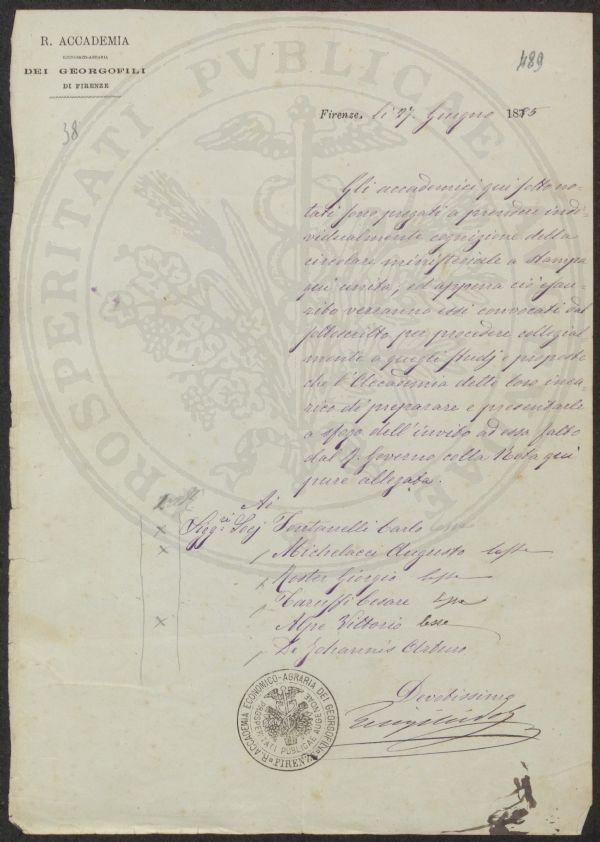 R. ACCADEMIA
ECONOMICO-AGRARIA
DEI GEORGOFILI
DI FIRENZE
489
38
Firenze, li 27. Giugno 1885
Gli accademici qui sotto no-
tati sono pregati a prendere indi-
vidualmente cognizione della
circolare ministeriale a stampa
qui unita, ed appena ciò esau-
rito verranno essi convocati dal
sottoscritto per procedere collegial
mente a quegli studj e proposte
che l'Accademia dette loro inca-
rico di preparare e presentarle
a sfogo dell'invito ad essa fatto
dal R. Governo colla Nota qui
pure allegata.
Ai
Sigg.ri Socj Fontanelli Carlo
Michelacci Augusto lesse
Roster Giorgio lesse
Taruffi Cesare
Alpe Vittorio lesse
De Johannis Arturo
Devotissimo
R. ACCADEMIA ECONOMICO-AGRARIA DEI GEORGOFILI
FIRENZE
PROSPERITATI PUBLICAE AUGENDAE
PROSPERITATI PUBLICAE AUGENDAE